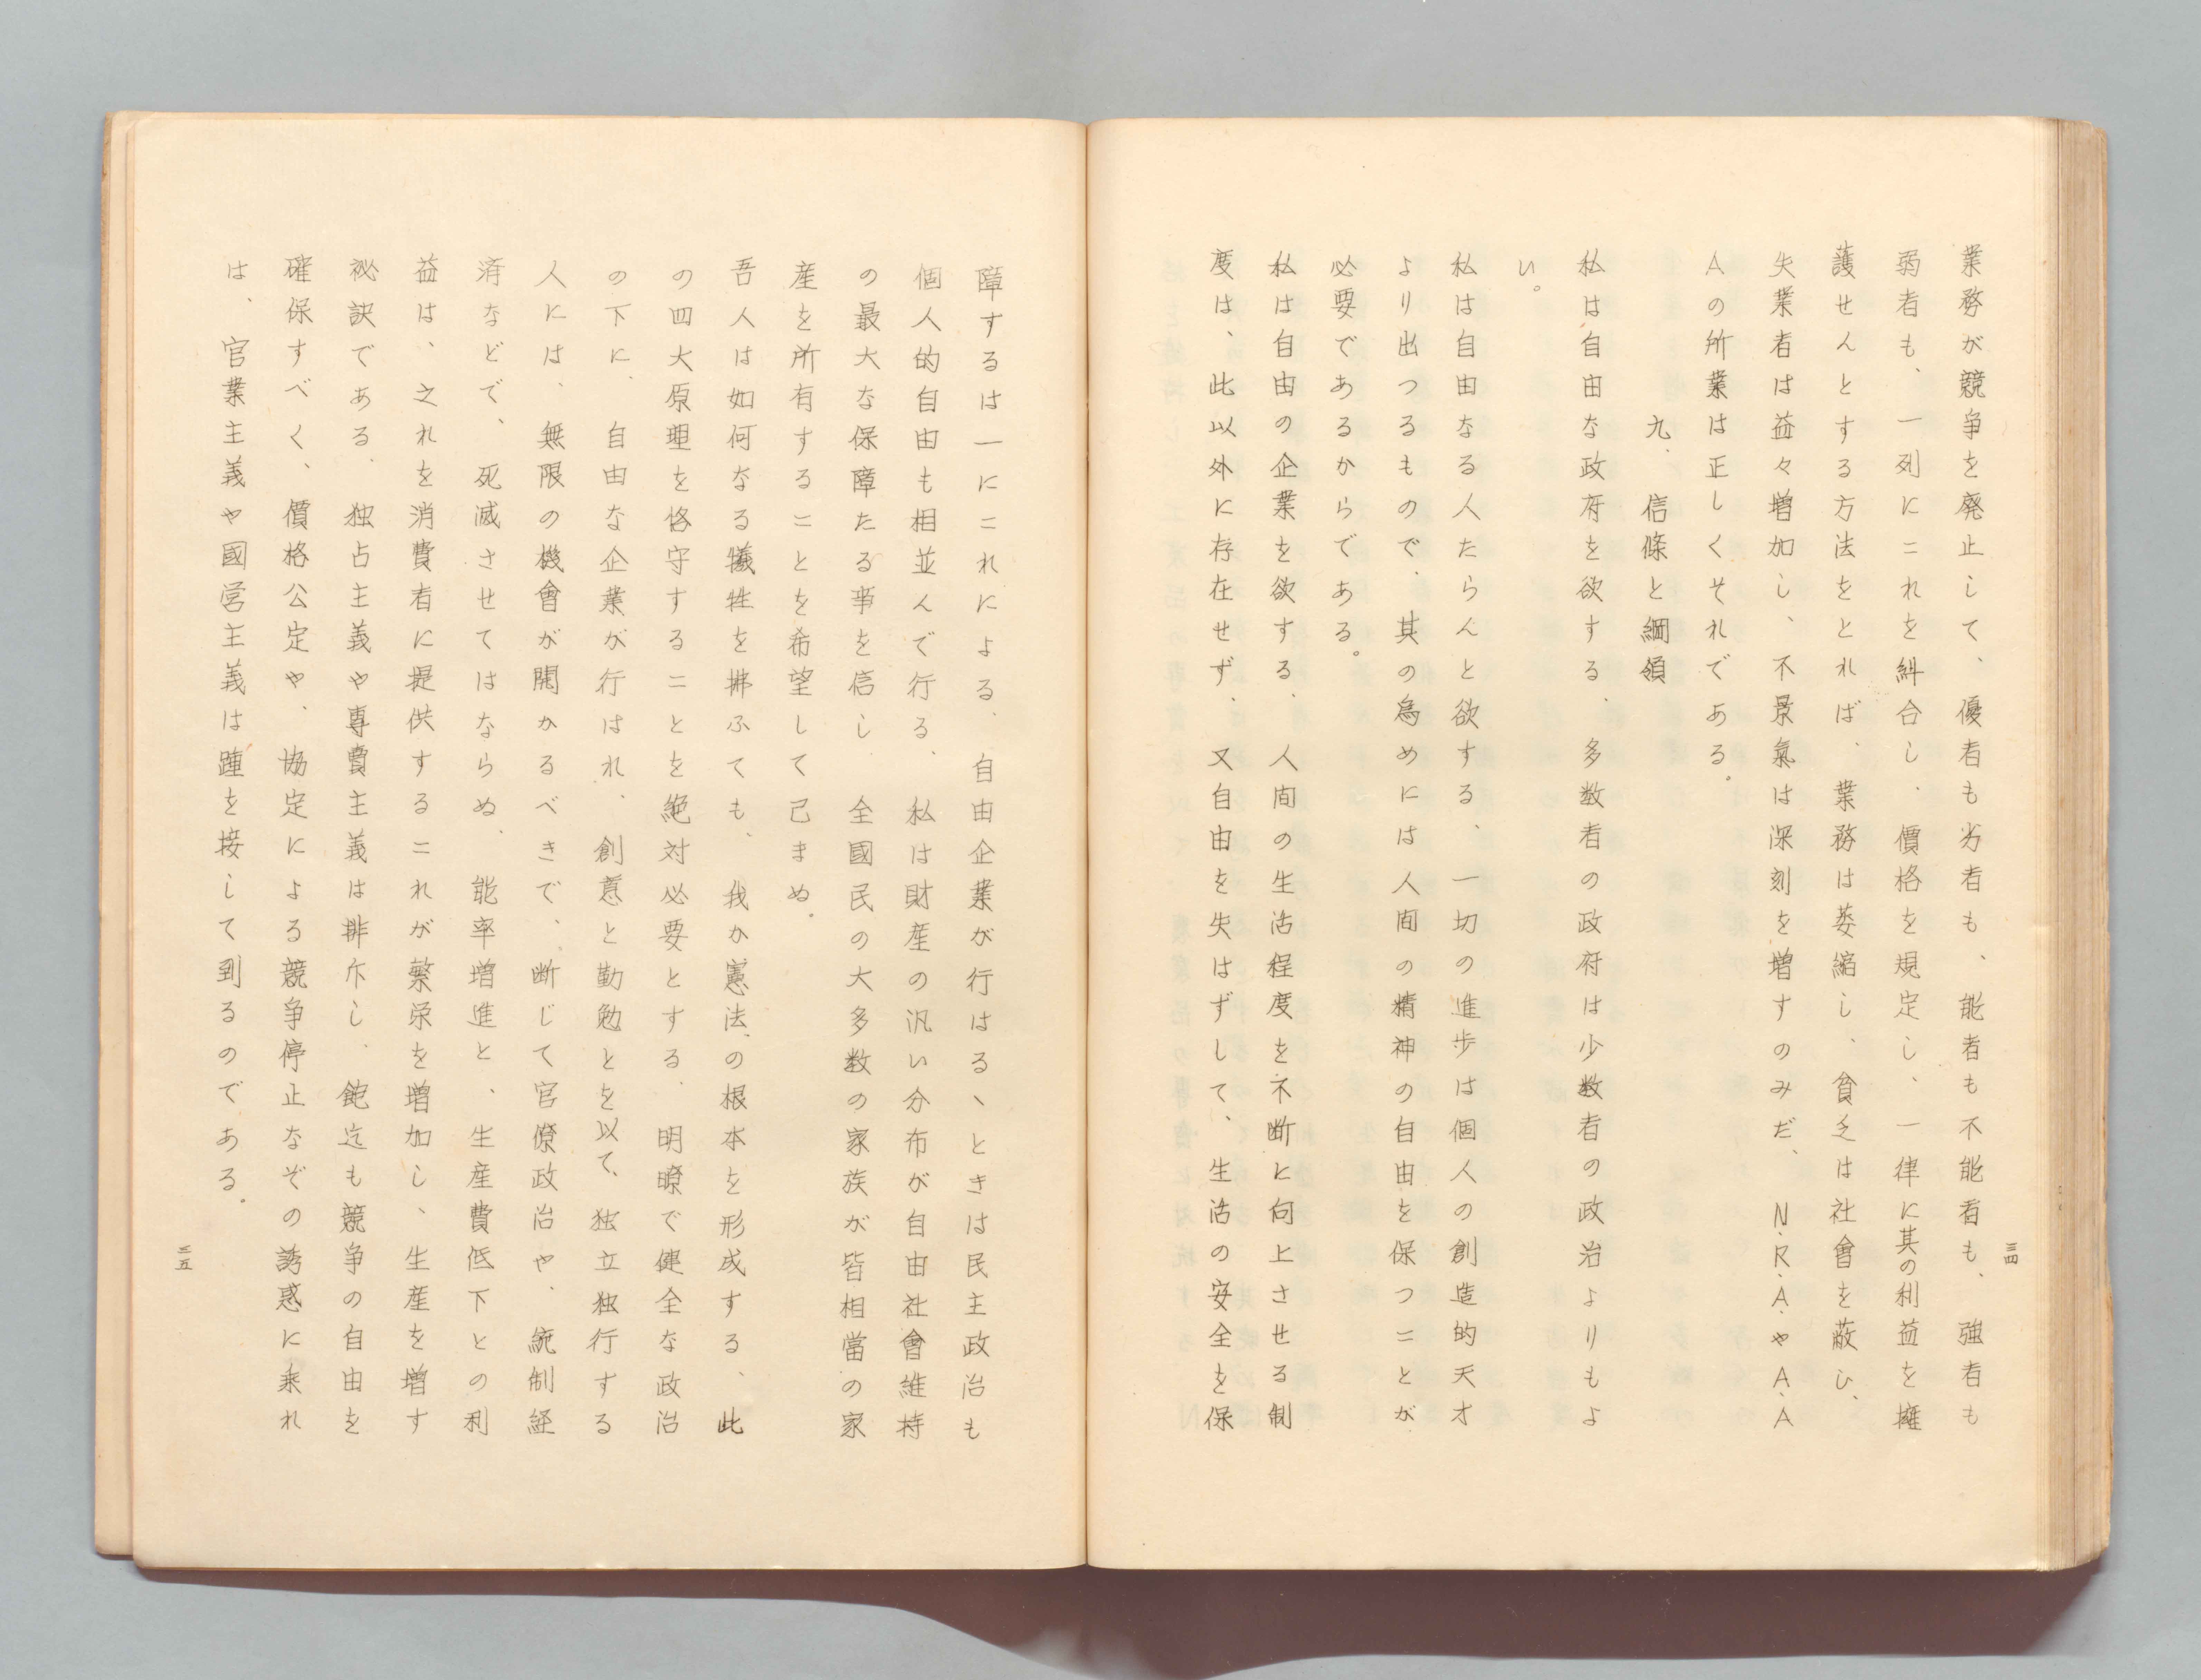 業務が競争を廃止して、優者も劣者も、能者も不能者も、強者も
弱者も、一列にこれを糾合し、價格を規定し、一律に其の利益を擁
護せんとする方法をとれば、業務は萎縮し、貧乏は社會を蔽ひ、
失業者は益々増加し、不景氣は深刻を増すのみだ、N.R.A.やA.A
Aの所業は正しくそれである。
九、信條と綱領
私は自由な政府を欲する、多数者の政府は少数者の政治よりもよ
い。
私は自由なる人たらんと欲する、一切の進歩は個人の創造的天才
より出つるもので、其の為めには人间の精神の自由を保つことが
必要であるからである。
私は自由の企業を欲する、人间の生活程度を不断に向上させる制
度は、此以外に存在せず、又自由を失はずして、生活の安全を保
三四
障するは一にこれによる、自由企業が行はるヽときは民主政治も
個人的自由も相並んで行る、私は財産の汎い分布が自由社會維持
の最大な保障たる事を信し、全國民の大多数の家族が皆相當の家
産を所有することを希望して已まぬ。
吾人は如何なる犠牲を拂ふても、我か憲法の根本を形成する、此
の四大原理を恪守することを絶対必要とする、明瞭で健全な政治
の下に、自由な企業が行はれ、創意と勤勉とを以て、独立独行する
人には、無限の機會が開かるべきで、断じて官僚政治や、統制経
済などで、死滅させてはならぬ、能率増進と、生産費低下との利
益は、之れを消費者に提供するこれが繁栄を増加し、生産を増す
祕訣である、独占主義や專賣主義は排斥し、飽迄も競争の自由を
確保すべく、價格公定や、協定による競争停止なぞの誘惑に乗れ
は、官業主義や國営主義は踵を接して到るのである。
三五